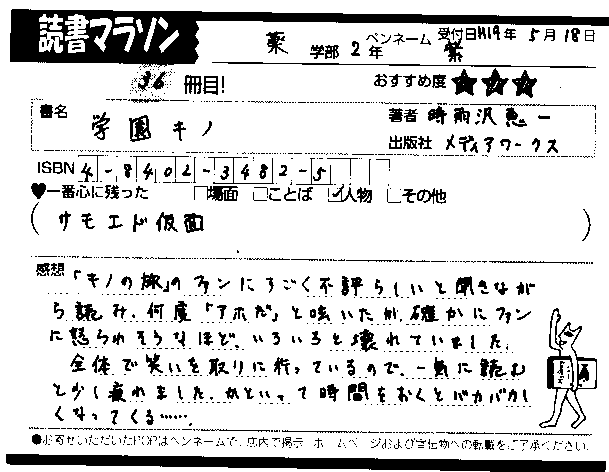 読書マラソン
薬 学部 2 年 ペンネーム 紫 受付日H19年 5月18日
36 冊目! おすすめ度 ★★★
書名 学園キノ 著者 時雨沢恵一
出版社 メディアワークス
ISBN 4-8402-3482-5
♥一番心に残った □場面 □ことば ☑人物 □その他
(サモエド仮面)
感想 「キノの旅」のファンにすごく不評らしいと聞きなが
ら読み、何度「アホだ」と呟いたが、確かにファン
に怒られそうなほど、いろいろと壊れていました。
全体で笑いを取りに行っているので、一気に読む
と少し疲れました。かといって時間をおくとバカバカし
くなってくる……。
●お寄せいただいたPOPはペンネームで、店内で掲示・ホームページおよび宣伝物への転載をご了承ください。